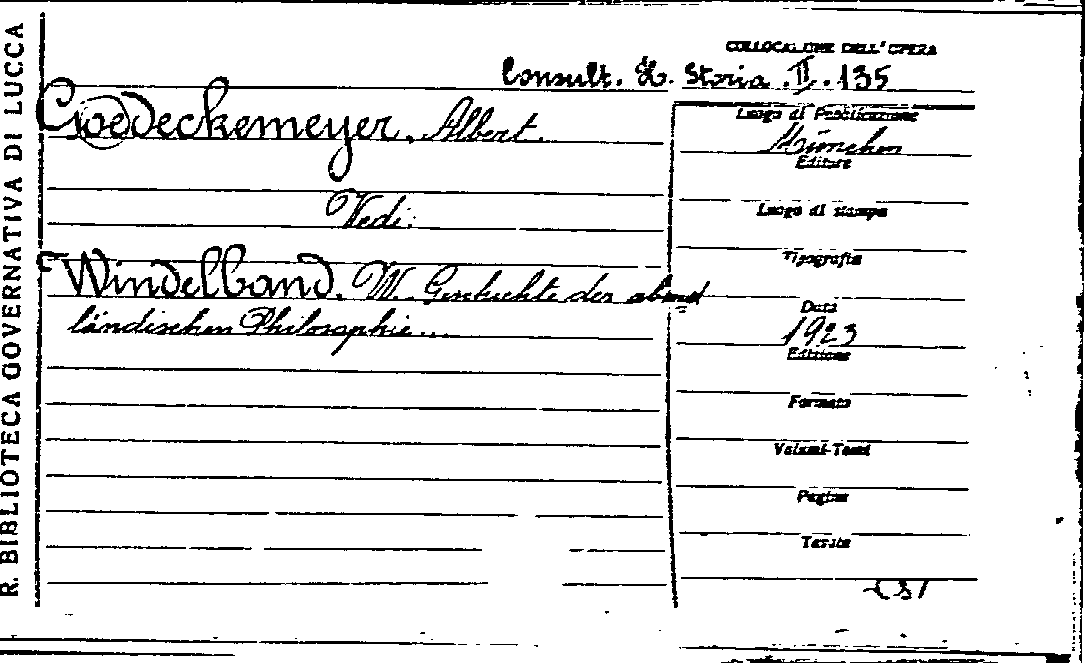 R. BIBLIOTECA GOVERNATIVA DI LUCCA
COLLOCAZIONE DELL' OPERA
Consult. L. Storia. II. 135
Goedeckemeyer, Albert.
Vedi:
Windelband. W. Geschichte der abend
ländischen Philosophie...
Luogo di Pubblicazione
München
Editore
Luogo di stampa
Tipografia
Data
1923
Edizione
Formato
Volumi-Tomi
Pagine
Tavole